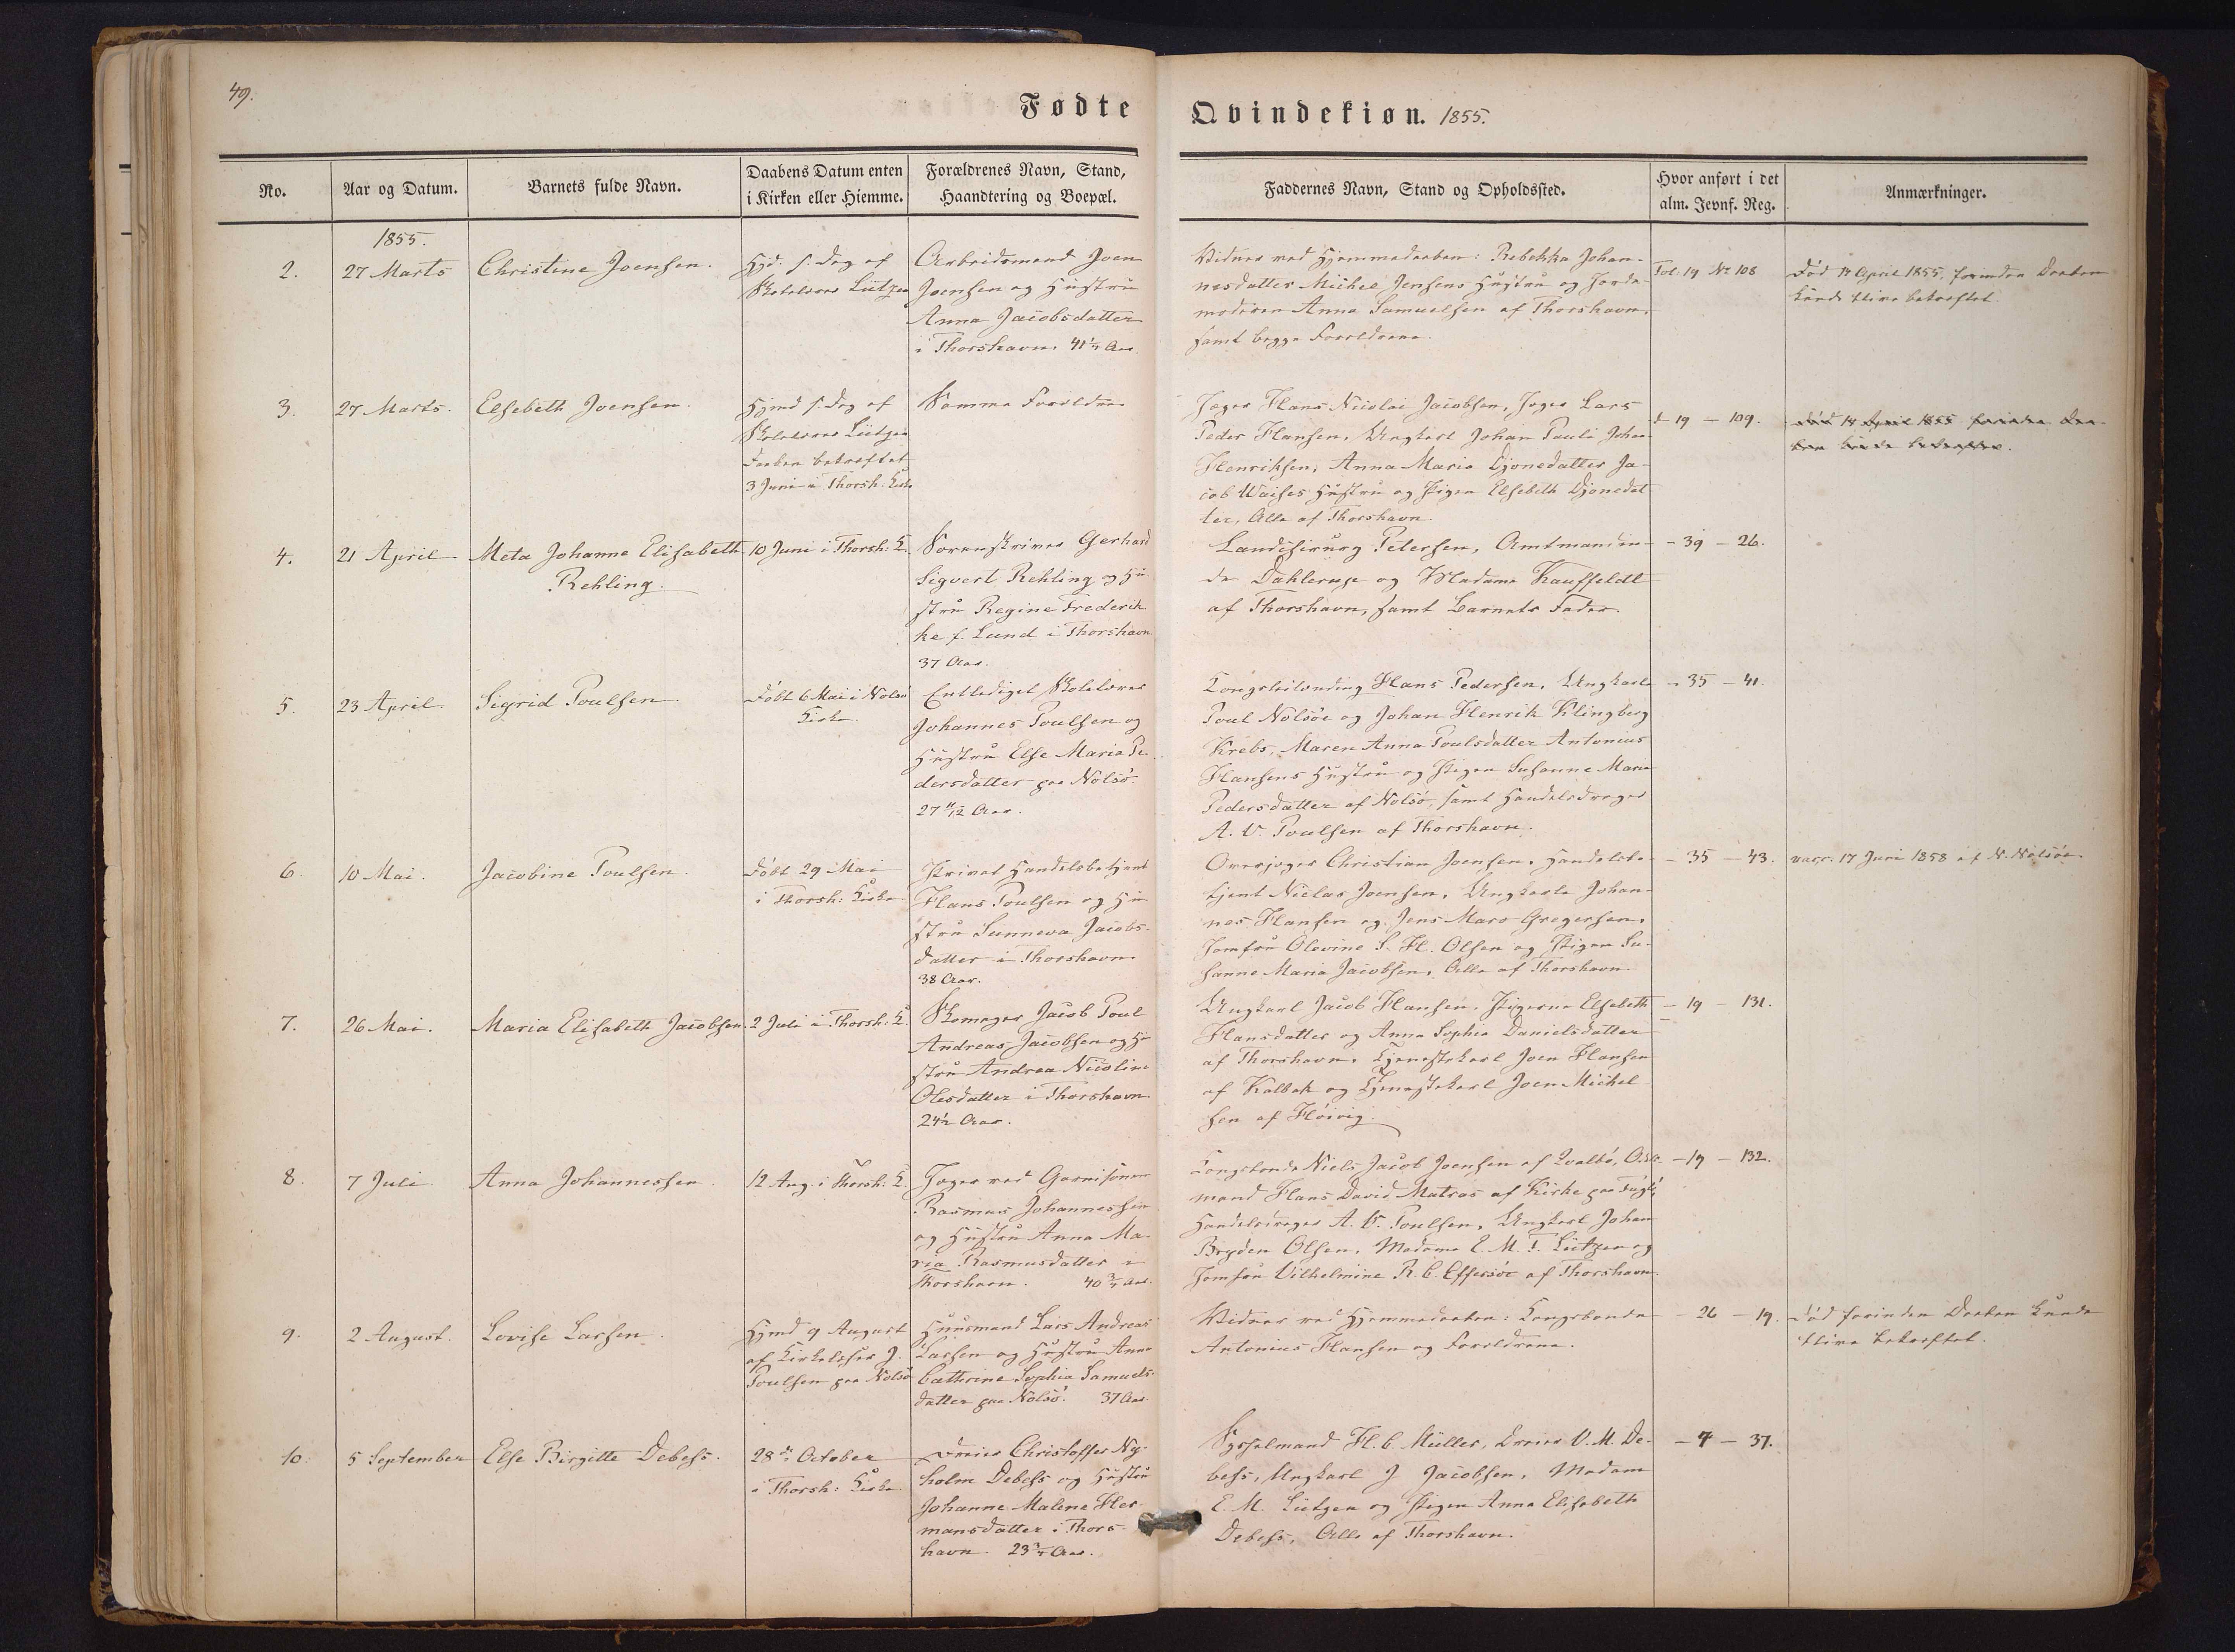 49.
Fødte
Qvindekiøn. 1855.
No.
Aar og Datum.
Barnets fulde Navn.
Daabens Datum enten
i Kirken eller Hiemme.
Forældrenes Navn, Stand,
Haandtering og Boepæl.
Faddernes Navn, Stand og Opholdssted.
Hvor anført i det
alm. Jevnf. Reg.
Anmærkninger.
1855.
2.
27 Marts
Christine Joensen.
Hjd. s. Dag af
Skolelærer Lützen
Arbeidsmand Joen
Joensen og Hustru
Anna Jacobsdatter
i Thorshavn. 41 1/4 Aar
Vidner ved Hjemmedaaben: Rebekka Johan-
nesdatter Michel Jensens Hustru og Jorde-
moderen Anna Samuelsen af Thorshavn,
samt begge Forældrene.
Fol. 19 No 108
Død 14 April 1855, forinden Daaben
kunde blive bekræftet.
3.
27 Marts.
Elsebeth Joensen.
Hjmd s. Dag af
Skolelærer Lützen
Daaben bekræftet
3 Juni i Thorsh. Kirke
Samme Forældre
Jæger Hans Nicolai Jacobsen, Jæger Lars
Peder Hansen, Ungkarl Johan Pauli Johan
Henriksen, Anna Maria Djonedatter Ja-
cob Waises Hustru og Pigen Elsebeth Djonedat-
ter, Alle af Thorshavn.
d- 19 - 109.
død 14 April 1855 forinden Daa-
ben kunde bekræftes.
4.
21 April
Meta Johanne Elisabeth
Rehling.
10 Juni i Thorsh: K.
Sorenskriver Gerhard
Sigvert Rehling og Hu-
stru Regine Frederik-
ke f. Lund i Thorshavn
37 Aar.
Landchirurg Petersen, Amtmandin-
de Dahlerup og Madame Kauffeldt
af Thorshavn, samt Barnets Fader.
- 39 - 26.
5.
23 April.
Sigrid Poulsen.
Døbt 6 Mai i Nolsø
Kirke.
Entlediget Skolelærer
Johannes Poulsen og
Hustru Else Maria Pe-
dersdatter paa Nolsø.
27 11/12 Aar.
Hans Pedersen, Ungkarle
Poul Nolsøe og Johan Henrik Klingberg
Krebs, Maren Anna Poulsdatter Antonius
Hansens Hustru og Pigen Susanne Maria
Pedersdatter af Nolsø, samt Handelsdreger
A. V. Poulsen af Thorshavn.
- 35 - 41.
6.
10 Mai.
Jacobine Poulsen.
Døbt 29 Mai
i Thorsh: Kirke
Privat Handelsbetjent
Hans Poulsen og Hu-
stru Sunneva Jacobs-
datter i Thorshavn.
38 Aar.
Overjæger Christian Joensen, Handelsbe-
tjent Niclas Joensen, Ungkarle Johan-
nes Hansen og Jens Maro Gregersen,
Jomfru Olevine S. H. Olsen og Pigen Su-
sanne Maria Jacobsen, Alle af Thorshavn.
- 35 - 43.
vacc. 17 Juni 1858 af N. Nolsøe.
7.
26 Mai.
Maria Elisabeth Jacobsen.
2 Juli i Thorsh: K.
Skomager Jacob Poul
Andreas Jacobsen og Hu-
stru Andrea Nicoline
Olesdatter i Thorshavn.
24 1/2 Aar.
Ungkarl Jacob Hansen, Pigerne Elsebeth
Hansdatter og Anna Sophia Danielsdatter
af Thorshavn, Tjenestekarl Joen Hansen
af Kalbak og Tjenestekarl Joen Michel-
sen af Høivig.
- 19 - 131.
8.
7 Juli.
Anna Johannessen
12 Aug. i Thorsh: K.
Jæger ved Garnisonen
Rasmus Johannessen
og Hustru Anna Ma-
ria Rasmusdatter i
Thorshavn. 40 3/4 Aar.
Kongsbonde Niels Jacob Joensen af Qvalbø, Odels-
mand Hans David Matras af Kirke paa Fuglø,
Handelsdreger A. V. Poulsen, Ungkarl Johan
Bryden Olsen, Madame E. M. F. Lützen og
Jomfru Vilhelmine R. C. Effersøe af Thorshavn.
- 19 - 132.
9.
2 August.
Lovise Larsen.
Hjmd 9 August
af Kirkelæser J.
Poulsen paa Nolsø
Huusmand Lars Andreas
Larsen og Hustru Anne
Cathrine Sophia Samuels-
datter paa Nolsø. 37 Aar.
Vidner ved Hjemmedaaben: Kongsbonde
Antonius Hansen og Forældrene.
- 26 - 19.
Død forinden Daaben kunde
blive bekræftet.
10.
5 September
Else Birgitte Debess.
28de October
i Thorsh: Kirke
Dreier Christoffer Ny-
holm Debess og Hustru
Johanne Malene Her-
mansdatter i Thors-
havn. 23 3/4 Aar.
Sysselmand H. C. Müller, Dreier V. M. De-
bess, Ungkarl J Jacobsen, Madam
E. M. Lützen og Pigen Anna Elisabeth
Debess, Alle af Thorshavn.
- 7 - 37.